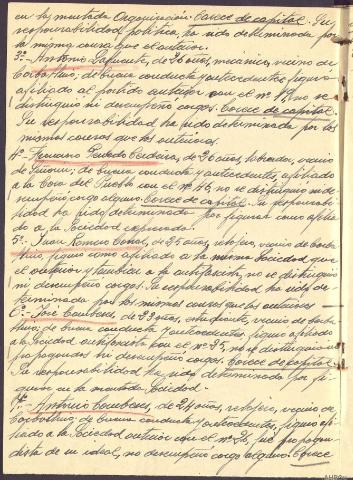 en la mentada Organización. Carece de capital. Su
responsabilidad política, ha sido determinada por
la misma causa que el anterior.
3º.- Antonio Lafuente, de 26 años, mecánico, vecino de
Carballino; de buena conducta y antecedentes, figura
afiliado al partido anterior con el nº 19, no se
distinguió ni desempeñó cargos. Carece de capital.
Su responsabilidad ha sido determinada por las
mismas causas que los anteriores.
4º.- de 26 años, labrador, vecino
de de buena conducta y antecedentes, afiliado
a la Casa del Pueblo con el nº no se distinguió ni de-
sempeñó cargo alguno. Carece de capital. Su responsabili-
dad ha sido determinada por figurar como afilia-
do a la Sociedad expresada.
5º.- Juan Canal, de 35 años, relojero, vecino de Carba-
llino, figura como afiliado a la misma Sociedad que
el anterior y también a la no se distinguió
ni desempeñó cargos. Su responsabilidad ha sido de-
terminada por las mismas causas que los anteriores
6º.- José de 23 años, estudiante, vecino de Carba-
llino; de buena conducta y antecedentes, figura afiliado
a la Sociedad con el nº 35, no se distinguió en
propagandas ni desempeñó cargos. Carece de capital.
Su responsabilidad ha sido determinada por fi-
gurar en la mentada Sociedad.
7º.- Antonio de 24 años, relojero, vecino de
Carballino, de buena conducta y antecedentes, figura afi-
liado a la Sociedad anterior con el nº 26, fué propagan-
dista de su ideal, no desempeñó cargo alguno. Carece